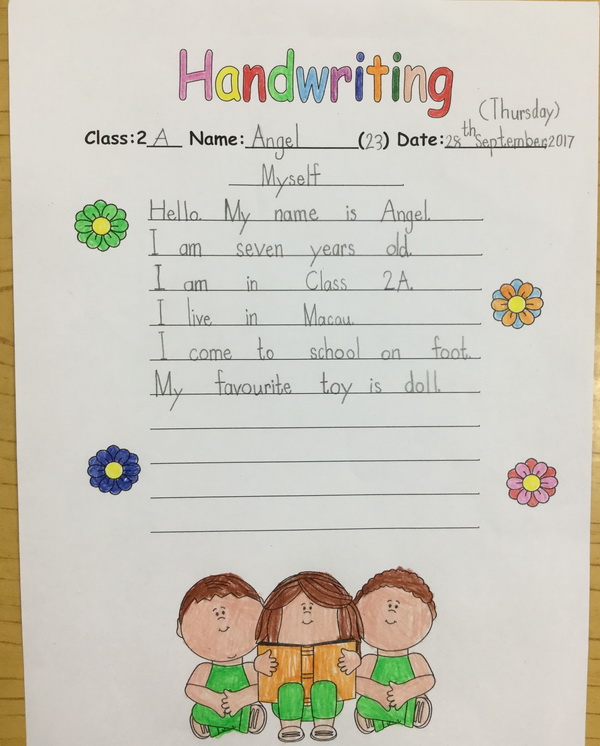 Handwriting
(Thursday)
Class:2 A Name: Angel (23) Date: 28th September, 2017
Myself
Hello. My name is Angel.
I am seven years old.
I am in Class 2A.
I live in Macau.
I come to school on foot.
My favourite toy is doll.